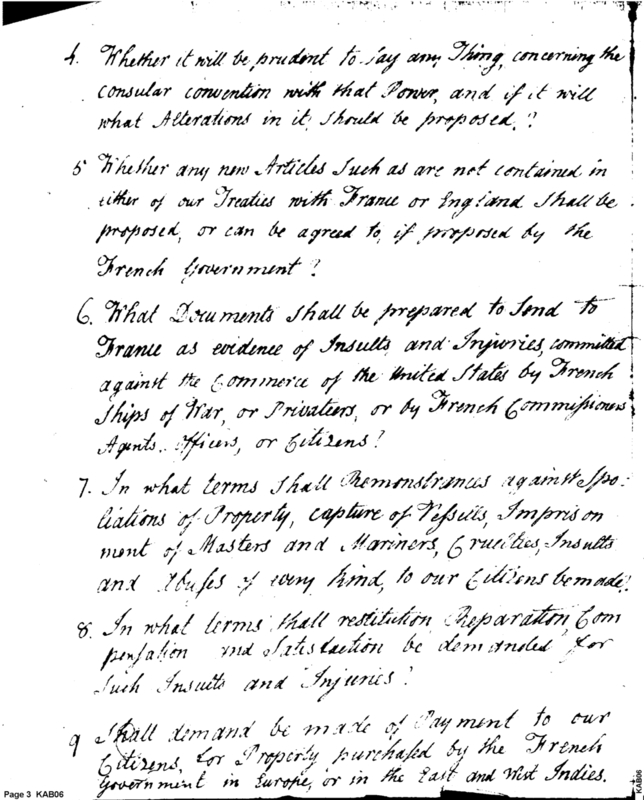 4. Whether it will be prudent to say any Thing, concerning the
consular convention with that Power, and if it will
what Alterations in it, should be proposed,?
5 Whether any new Articles Such as are not contained in
either of our Treaties with France or England shall be
proposed, or can be agreed to, if proposed by the
French Government?
6. What Documents shall be prepared to Send to
France as evidence of Insults and Injuries, committed
against the Commerce of the United States by French
Ships of War, or Privatiers, or by French Commissioners
Agents, Officers, or Citizens?
7. In what terms shall Remonstrances against Spo-
liations of Property, capture of Vessells, Imprison
ment of Masters and Mariners, Cruelties, Insults
and Abuses of every kind, to our Citizens be made?
8. In what terms shall restitution, Reparation Com
pensation and Satisfaction be demanded for
Such Insults and Injuries?
9 Shall demand be made of Payment to our
Citizens, for Property purchased by the French
Government in Europe, or in the East and West Indies.
Page 3 KAB06
KAB06